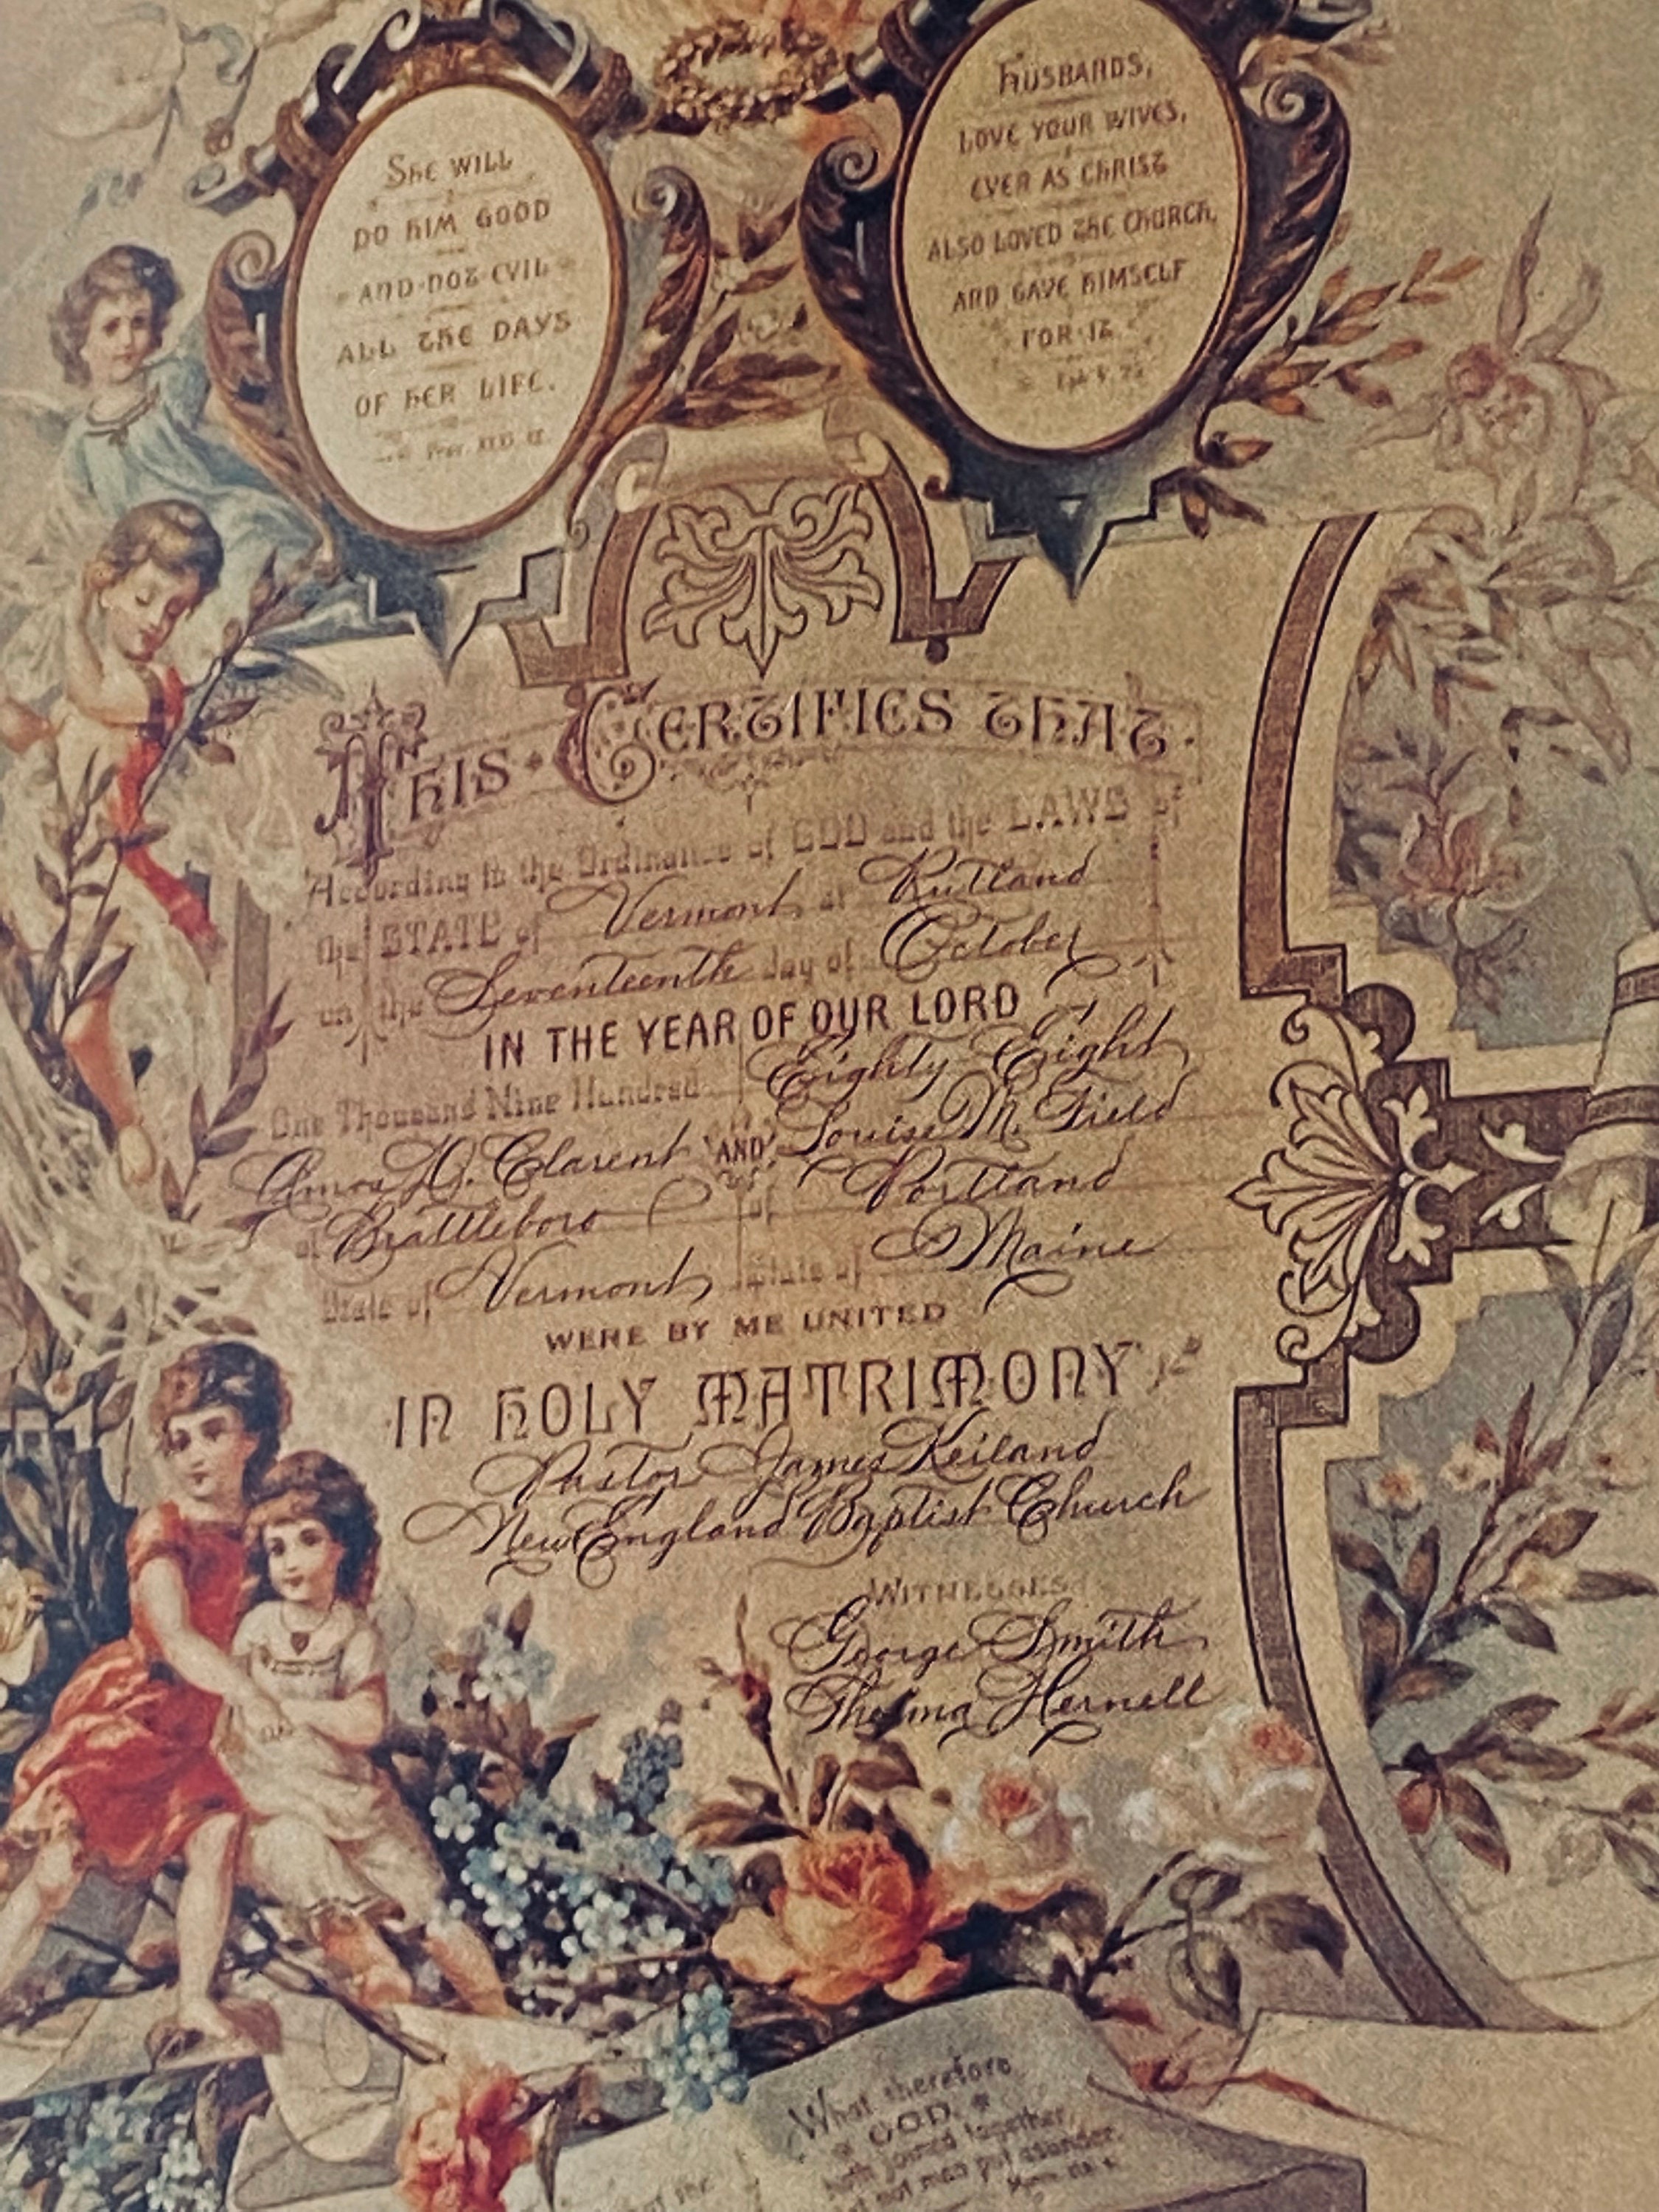 She will
do him good
and not evil
all the days
of her life.
Prov. XXXI. 12.
Husbands,
love your wives,
even as Christ
also loved the Church,
and gave himself
for it.
Eph. V. 25.
This Certifies that
According to the Ordinance of GOD and the LAWS of
the STATE of Vermont at Rutland
on the Seventeenth day of October
IN THE YEAR OF OUR LORD
One Thousand Nine Hundred Eighty-Eight
Amos D. Clarent AND Louise M. Field
of Brattleboro of Portland
State of Vermont State of Maine
WERE BY ME UNITED
IN HOLY MATRIMONY
Pastor James Keiland
New England Baptist Church
WITNESSES
George Smith
Thelma Hernell
What therefore
GOD
hath joined together
let not man put asunder.